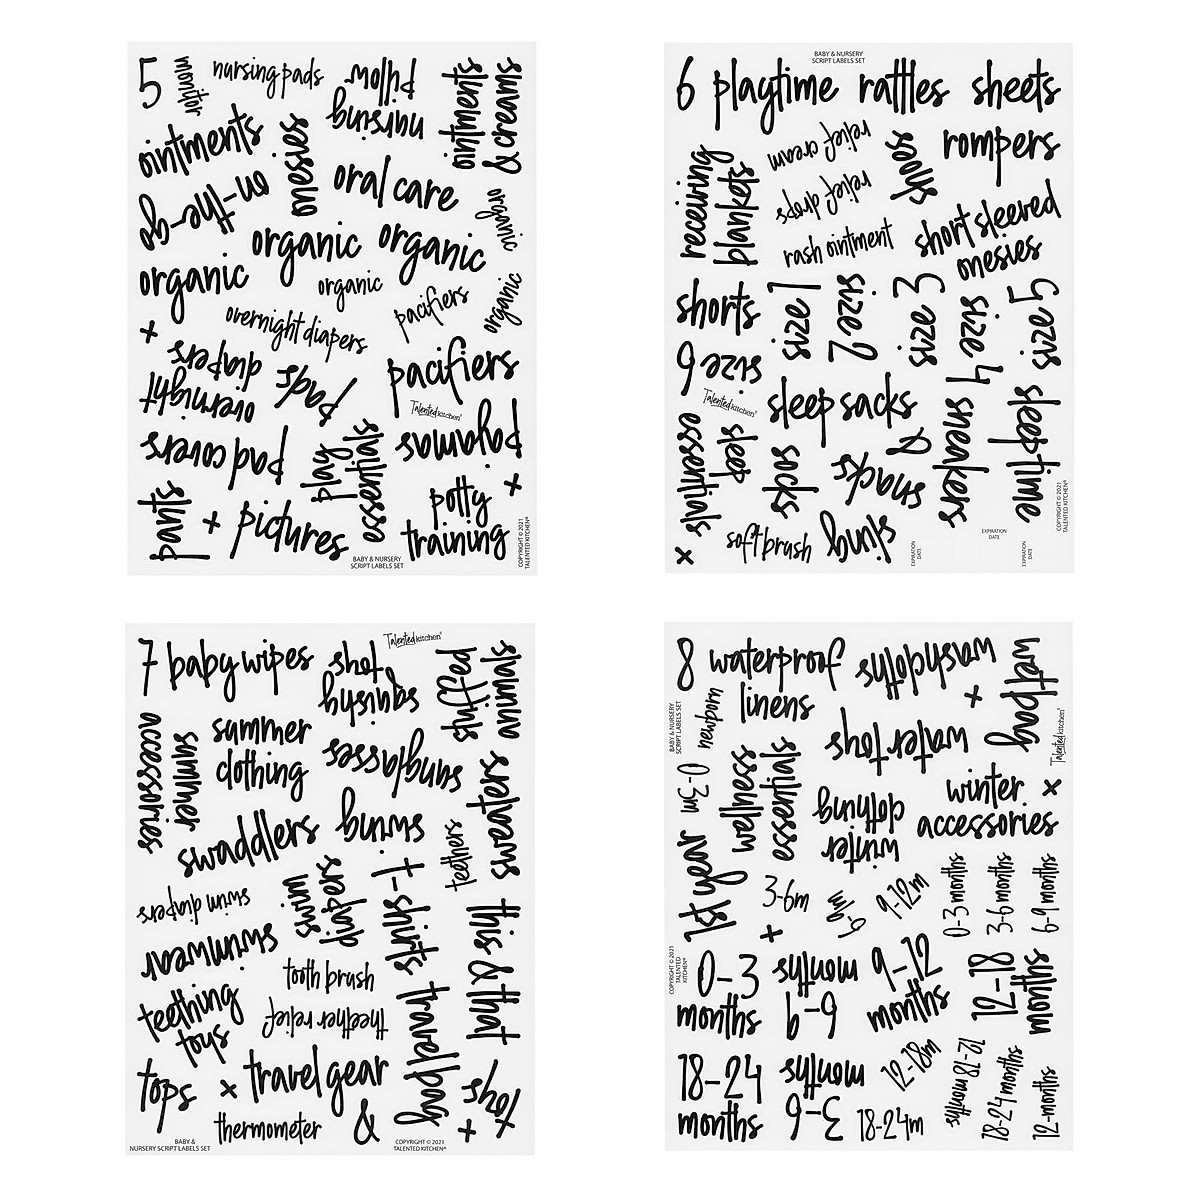 5
monitor
nursing pads
nursing
pillow
ointments
& creams
ointments
onesies
oral care
on-the-go
organic
organic
organic
organic
organic
organic
overnight diapers
pacifiers
+
overnight
diapers
pads
pacifiers
Talented kitchen®
pad covers
play
essentials
pajamas
pants
+
pictures
potty
training
+
BABY & NURSERY
SCRIPT LABELS SET
COPYRIGHT © 2021
TALENTED KITCHEN®
BABY & NURSERY
SCRIPT LABELS SET
6
playtime
rattles
sheets
receiving
blankets
relief cream
relief drops
shoes
rompers
rash ointment
short sleeved
onesies
shorts
size 1
size 2
size 3
size 4
size 5
size 6
Talented kitchen®
sleep sacks
sleep
essentials
socks
snacks
&
sneakers
sleeptime
+
soft brush
sling
EXPIRATION
DATE
EXPIRATION
DATE
EXPIRATION
DATE
COPYRIGHT © 2021
TALENTED KITCHEN®
7
baby wipes
squishy
toys
Talented kitchen®
stuffed
animals
summer
accessories
summer
clothing
sunglasses
swaddlers
swing
sweaters
teethers
swim diapers
swim
diapers
t-shirts
this & that
swimwear
tooth brush
teething
toys
theether relief
travel bag
tops
+
travel gear
toys
thermometer
&
+
BABY &
NURSERY SCRIPT LABELS SET
COPYRIGHT © 2021
TALENTED KITCHEN®
8
waterproof
linens
washcloths
+
wet bag
BABY & NURSERY
SCRIPT LABELS SET
newborn
water toys
Talented kitchen®
0-3m
wellness
essentials
winter
clothing
winter
accessories
+
1st year
3-6m
6-9m
9-12m
0-3 months
3-6 months
6-9 months
+
COPYRIGHT © 2021
TALENTED
KITCHEN®
0-3
months
6-9
months
9-12
months
12-18
months
18-24
months
3-6
months
12-18m
12-18 months
18-24 months
12-months
18-24m